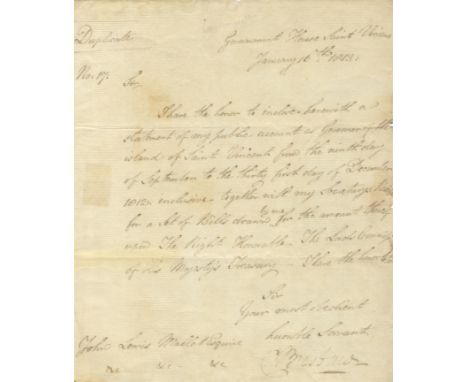 Duplicate
Government House Saint Vincent
January 16th 1813.
No. 17.
Sir
I have the honor to inclose herewith a
statement of my public account as Governor of the
island of Saint Vincent from the ninth day
of September to the thirty first day of December
1812 inclusive, together with my
for a Set of Bills drawn by me for the amount thereof
upon The Right Honorable The Lords Commis
of His Majesty's Treasury - I have the honor
Sir
Your most obedient
humble Servant
John Lewis Mallet Esquire
&c &c &c